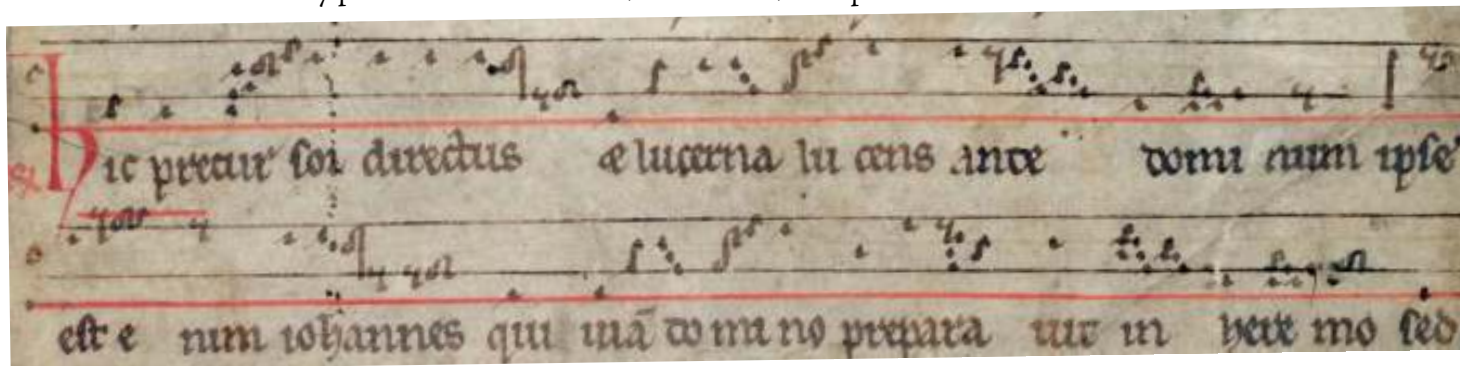 hic precur soř directus & lucerna lu cens ante domi num ipse
est e nim iohannes qui uiā do mi no prepara uit in here mo sed